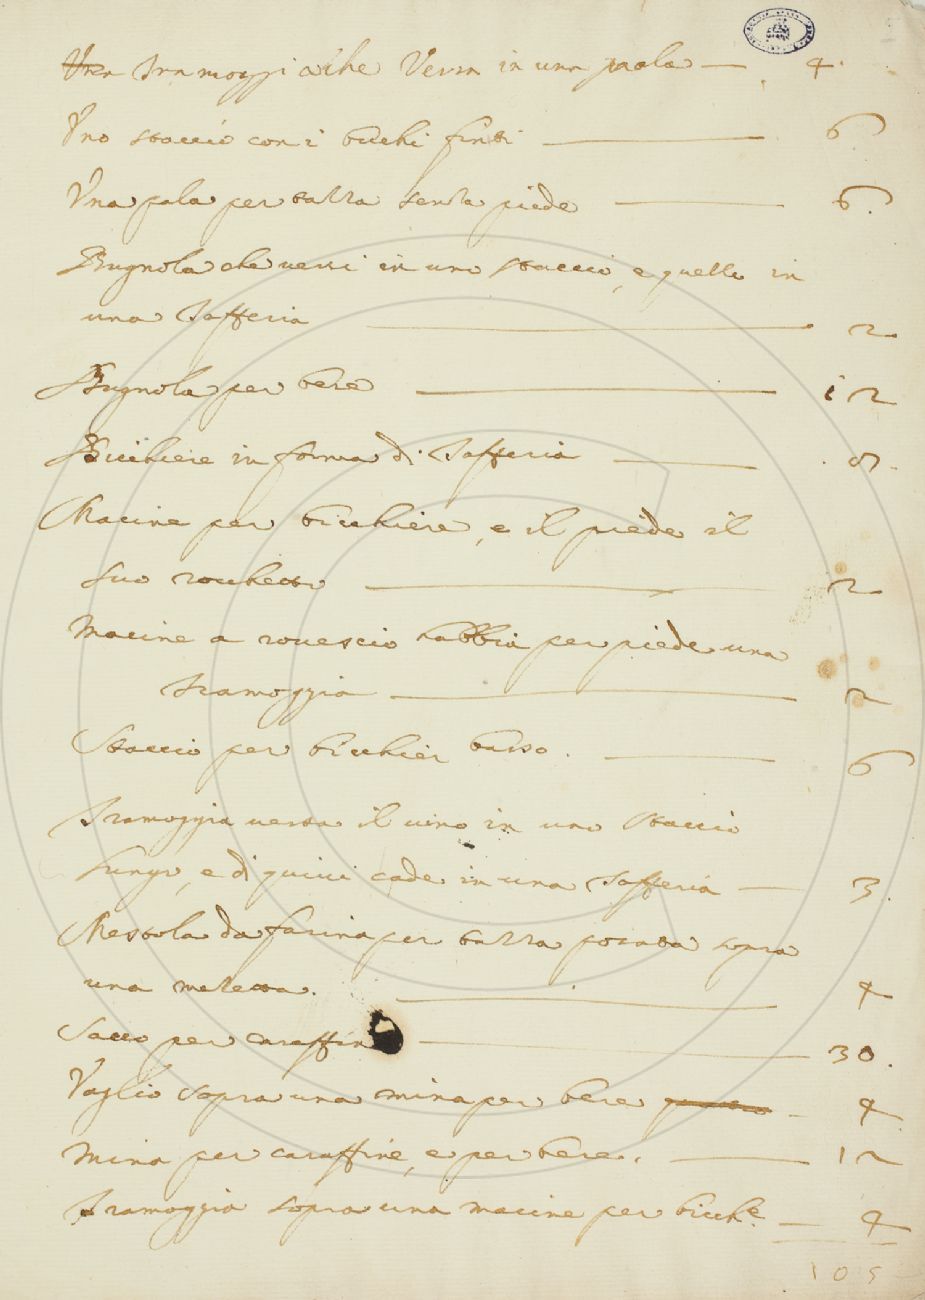 ~~Una~~ Tramoggia che Versa in una paola — 4.
Uno staccio con i buchi finti — 6
Una pala per tazza senza piede — 6.
Bugnola che versi in uno staccio, e quello in
una Tafferia — 2.
Bugnola per bere — 12
Bicchiere in forma di Tafferia — 8.
Macine per bicchiere, e il piede il
suo rocchetto — 2
Macine a rovescio habbia per piede una
tramoggia — 2
Staccio per bicchier basso. — 6
Tramoggia versa il vino in uno staccio
lungo, e di quivi cade in una Tafferia — 3.
Mestola da farina per tazza posata sopra
una meletta. — 4
Sacco per caraffin — 30.
Vaglio sopra una mina per bere — 4
Mina per caraffine, e per bere. — 12
Tramoggia sopra una macine per bicch.e — 4
105